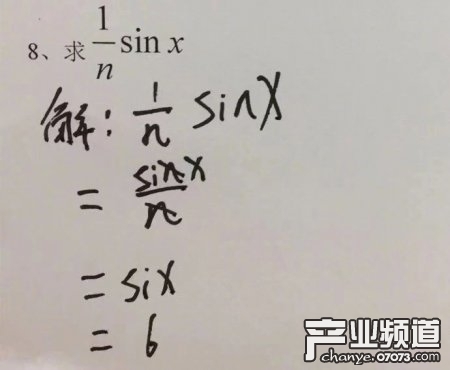 8、求 1/n sin x
解: 1/n sinx
= sinx/n
= six
= 6
产业频道
chanye.07073.com